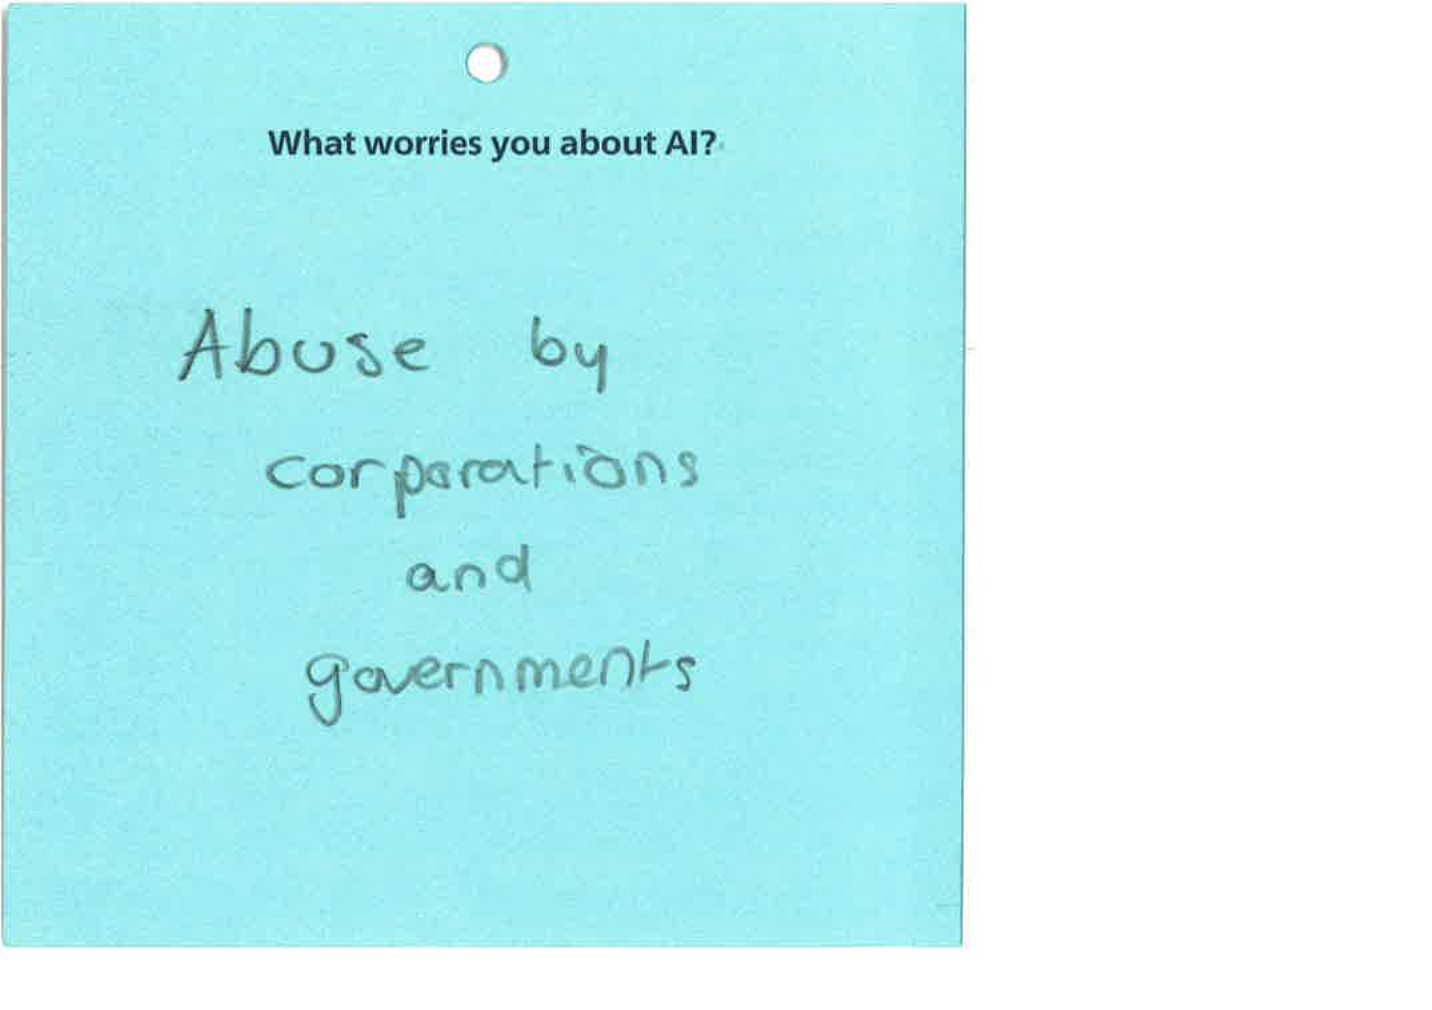 What worries you about AI?
Abuse by
corporations
and
governments